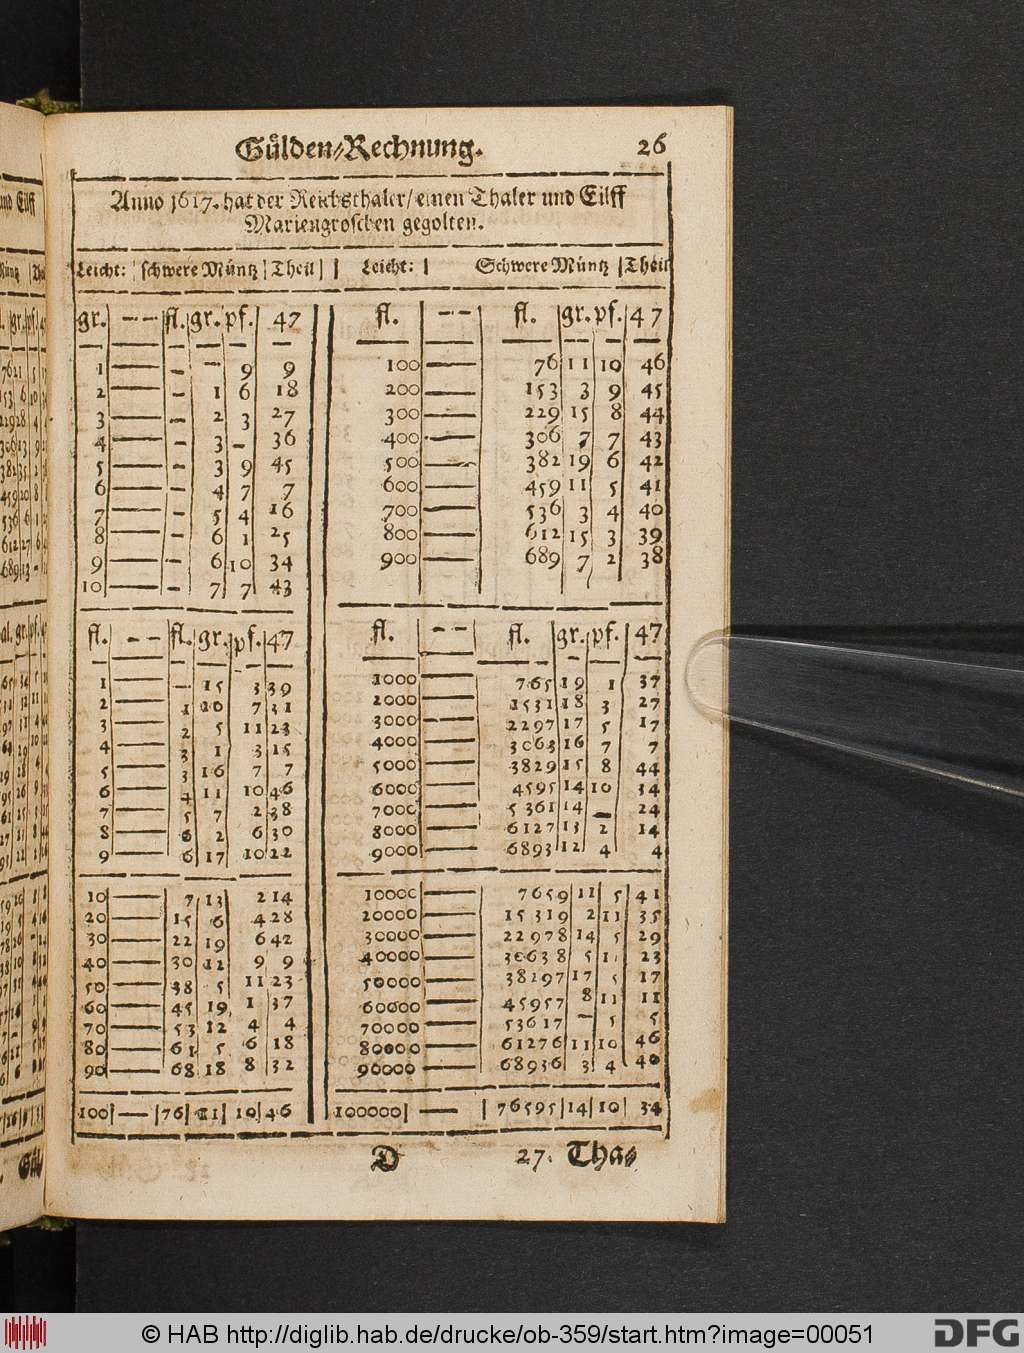 Gülden-Rechnung. 26
Anno 1617. hat der Reichsthaler/ einen Thaler und Eilff
Mariengroschen gegolten.
Leicht: | schwere Müntz | Theil | | Leicht: | Schwere Müntz | Theil
gr. — — fl. gr. pf. 47
1 — — — 9 9
2 — — 1 6 18
3 — — 2 3 27
4 — — 3 — 36
5 — — 3 9 45
6 — — 4 7 7
7 — — 5 4 16
8 — — 6 1 25
9 — — 6 10 34
10 — — 7 7 43
fl. — — fl. gr. pf. 47
1 — — 15 3 39
2 — 1 10 7 31
3 — 2 5 11 23
4 — 3 1 3 15
5 — 3 16 7 7
6 — 4 11 10 46
7 — 5 7 2 38
8 — 6 2 6 30
9 — 6 17 10 22
10 — 7 13 2 14
20 — 15 6 4 28
30 — 22 19 6 42
40 — 30 12 9 9
50 — 38 5 11 23
60 — 45 19 1 37
70 — 53 12 4 4
80 — 61 5 6 18
90 — 68 18 8 32
100 — 76 11 10 46
fl. — — fl. gr. pf. 47
100 — 76 11 10 46
200 — 153 3 9 45
300 — 229 15 8 44
400 — 306 7 7 43
500 — 382 19 6 42
600 — 459 11 5 41
700 — 536 3 4 40
800 — 612 15 3 39
900 — 689 7 2 38
fl. — — fl. gr. pf. 47
1000 — 765 19 1 37
2000 — 1531 18 3 27
3000 — 2297 17 5 17
4000 — 3063 16 7 7
5000 — 3829 15 8 44
6000 — 4595 14 10 34
7000 — 5361 14 — 24
8000 — 6127 13 2 14
9000 — 6893 12 4 4
10000 — 7659 11 5 41
20000 — 15319 2 11 35
30000 — 22978 14 5 29
40000 — 30638 5 1 23
50000 — 38297 17 5 17
60000 — 45957 8 11 11
70000 — 53617 — 5 5
80000 — 61276 11 10 46
90000 — 68936 3 4 40
100000 — 76595 14 10 34
D 27. Tha-
© HAB http://diglib.hab.de/drucke/ob-359/start.htm?image=00051
DFG